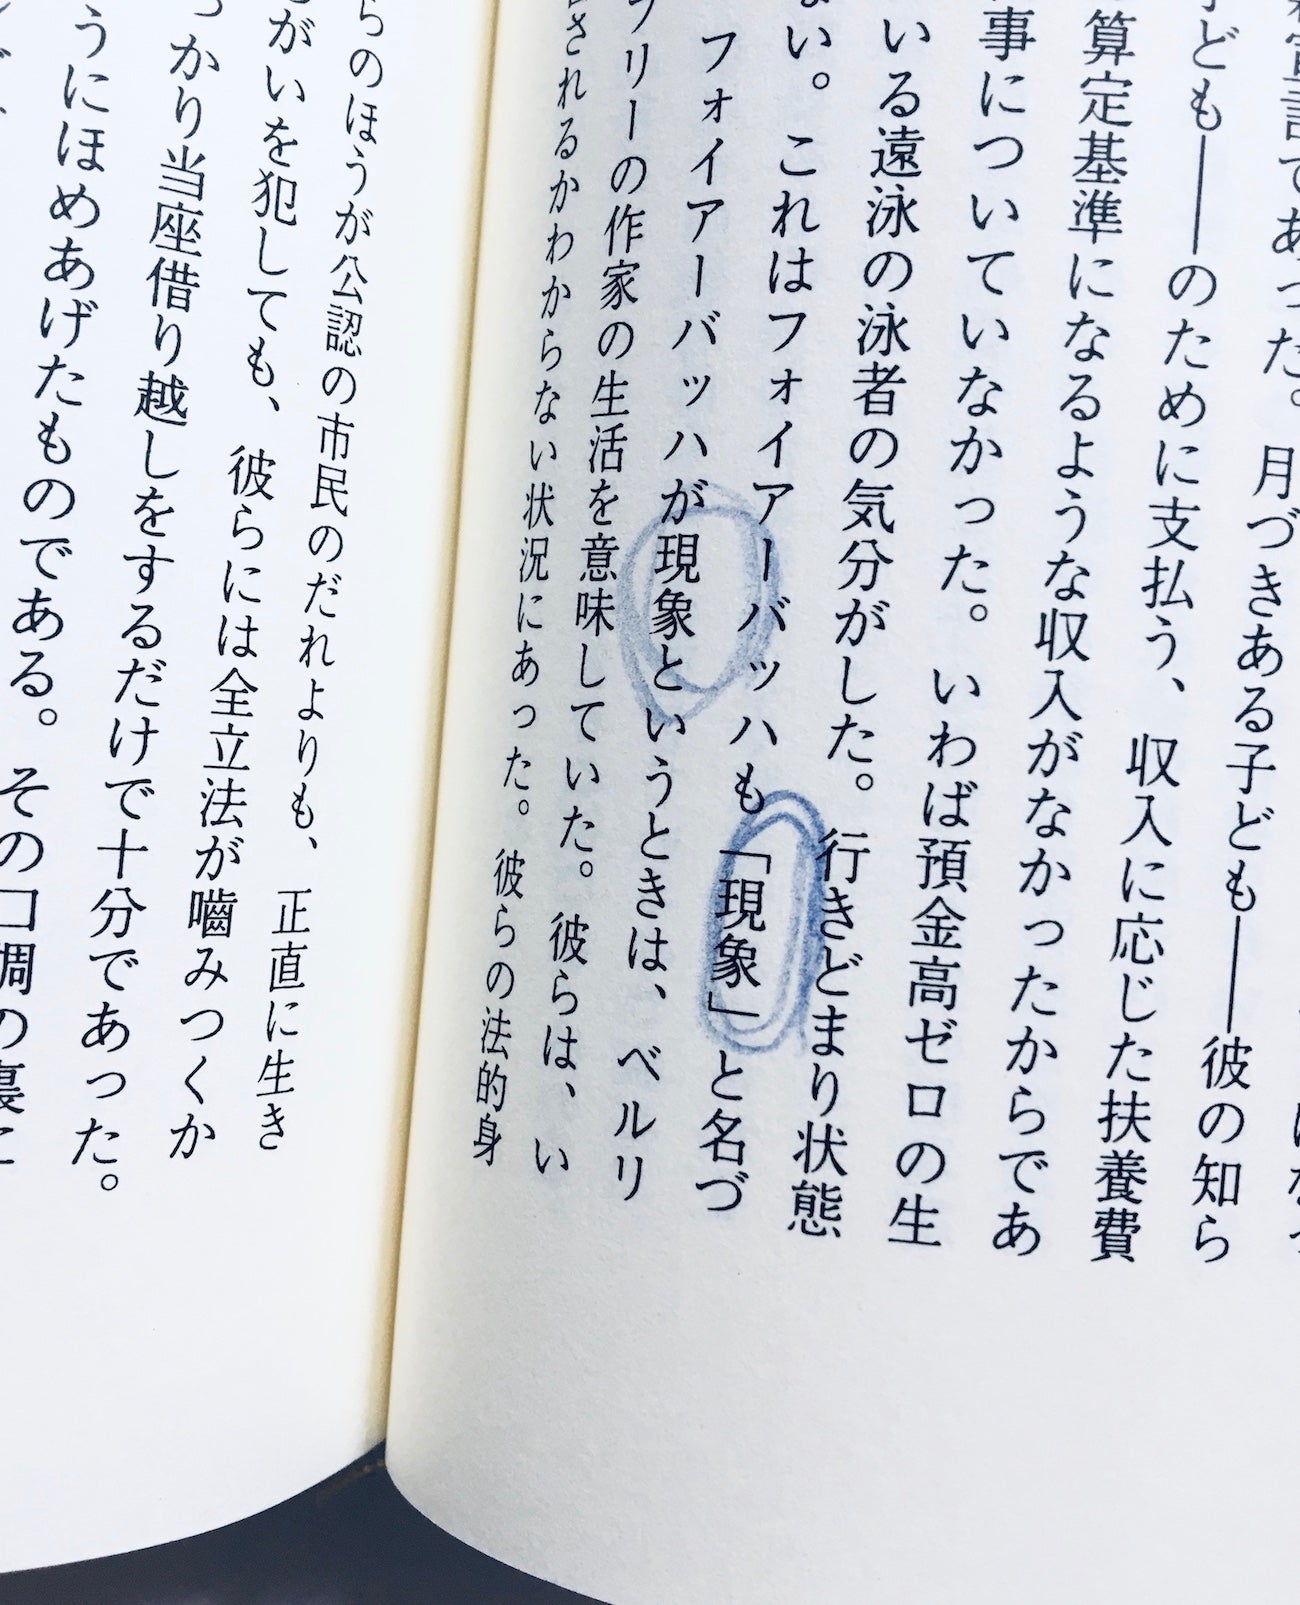 宣言であった。月づきある子ども――彼の知ら
子ども――のために支払う、収入に応じた扶養費
算定基準になるような収入がなかったからであ
事についていなかった。いわば預金高ゼロの生
いる遠泳の泳者の気分がした。行きどまり状態
ない。これはフォイアーバッハも「現象」と名づ
フォイアーバッハが現象というときは、ベルリ
フリーの作家の生活を意味していた。彼らは、い
されるかわからない状況にあった。彼らの法的身
らのほうが公認の市民のだれよりも、正直に生き
がいを犯しても、彼らには全立法が嚙みつくか
っかり当座借り越しをするだけで十分であった。
うにほめあげたものである。その口調の裏に